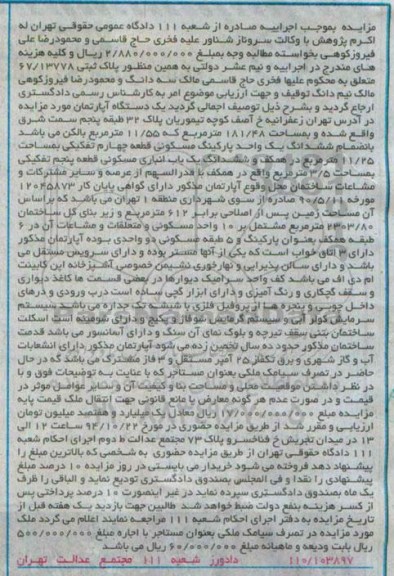 مزایده بموجب اجراییه صادره از شعبه ۱۱۱ دادگاه عمومی حقوقی تهران له
اکرم پژوهش با وکالت سروناز شناور علیه فخری حاج قاسمی و محمودرضا علی
فیروزکوهی بخواسته مطالبه وجه بمبلغ ۲/۸۸۰/۰۰۰/۰۰۰ ریال و کلیه هزینه
های مندرج در اجراییه و نیم عشر دولتی به همین منظور پلاک ثبتی ۶۷/۱۳۷۷۸
متعلق به محکوم علیها فخری حاج قاسمی مالک سه دانگ و محمودرضا فیروزکوهی
مالک نیم دانگ توقیف و جهت ارزیابی موضوع امر به کارشناس رسمی دادگستری
ارجاع گردید و بشرح ذیل توصیف اجمالی گردید یک دستگاه آپارتمان مورد مزایده
در آدرس تهران زعفرانیه خ آصف کوچه تیموریان پلاک ۳۲ طبقه پنجم سمت شرق
واقع شده و بمساحت ۱۸۱/۴۸ مترمربع که ۱۱/۵۵ مترمربع بالکن می باشد
بانضمام ششدانگ یک واحد پارکینگ مسکونی قطعه چهارم تفکیکی بمساحت
۱۱/۲۵ مترمربع در همکف و ششدانگ یک باب انباری مسکونی قطعه پنجم تفکیکی
بمساحت ۳/۵ مترمربع واقع در همکف با قدرالسهم از عرصه و سایر مشترکات و
مشاعات ساختمان محل وقوع آپارتمان مذکور دارای گواهی پایان کار ۱۲۰۴۵۸۷۳
مورخه ۹۰/۵/۱۱ صادره از سوی شهرداری منطقه ۱ تهران می باشد که براساس
آن مساحت زمین پس از اصلاحی برابر ۶۱۲ مترمربع و زیر بنای کل ساختمان
۲۳۰۳/۸۰ مترمربع مشتمل بر ۱۰ واحد مسکونی و متعلقات و مشاعات آن در ۶
طبقه همکف بعنوان پارکینگ و ۵ طبقه مسکونی دو واحدی بوده آپارتمان مذکور
دارای ۳ اتاق خواب است که یکی از آنها مستر بوده و دارای سرویس مستقل می
باشد و دارای سالن پذیرایی و نهارخوری نشیمن خصوصی آشپزخانه اپن کابینت
ام دی اف می باشد کف واحد سرامیک دیوارها در بعضی قسمت ها کاغذ دیواری
و سقف گچکاری و رنگ آمیزی و دارای ابزار گچی ساده است درب ورودی و درهای
داخل چوبی و پنجره ها از پروفیل فلزی با شیشه تک جداره می باشد سیستم
سرمایش کولر آبی و سیستم گرمایش شوفاژ و پکیج و دارای شومینه است اسکلت
ساختمان بتنی سقف تیرچه و بلوک نمای آن سنگ و دارای آسانسور می باشد قدمت
ساختمان مذکور حدود ده سال تخمین زده می شود آپارتمان مذکور دارای انشعابات
آب و گاز شهری و برق تکفاز ۲۵ آمپر مستقل و ۳ فاز مشترک می باشد که در حال
حاضر در تصرف سیامک ملکی بعنوان مستأجر که با عنایت به توضیحات فوق و با
در نظر داشتن موقعیت محلی و مساحت بنا و کیفیت آن و سایر عوامل موثر در
قیمت و در صورت عدم هر گونه معارض یا مانع قانونی جهت انتقال ملک قیمت پایه
مزایده مبلغ ۱۷/۰۰۰/۰۰۰/۰۰۰ ریال معادل یک میلیارد و هفتصد میلیون تومان
ارزیابی و مقرر شد از طریق مزایده حضوری در مورخ ۹۴/۱۰/۲۲ ساعت ۱۲ الی
۱۳ در میدان تجریش خ فناخسرو پلاک ۷۳ مجتمع عدالت ط دوم اجرای احکام شعبه
۱۱۱ دادگاه حقوقی تهران از طریق مزایده حضوری به شخصی که بالاترین مبلغ را
پیشنهاد دهد فروخته می شود خریدار می بایستی در روز مزایده ۱۰ درصد مبلغ
پیشنهادی را نقدا و فی المجلس بصندوق دادگستری تودیع نماید و الباقی را ظرف
یک ماه بصندوق دادگستری سپرده نماید در غیر اینصورت ۱۰ درصد پرداختی پس
از کسر هزینه بنفع دولت ضبط خواهد شد طالبین جهت بازدید یک هفته قبل از
تاریخ مزایده به دفتر اجرای احکام شعبه ۱۱۱ مراجعه نمایند اعلام می گردد ملک
مورد مزایده در تصرف سیامک ملکی بعنوان مستاجر با اجاره مبلغ ۵۰۰/۰۰۰/۰۰۰
ریال بابت ودیعه و ماهیانه مبلغ ۶۰/۰۰۰/۰۰۰ ریال می باشد
۱۱۰/۱۰۳۸۹۷ دادورز شعبه ۱۱۱ مجتمع عدالت تهران